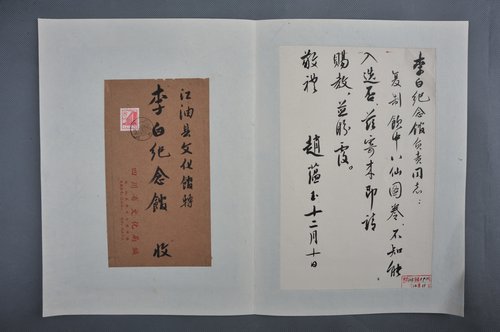 李白纪念馆负责同志:
复制饮中八仙图卷不知能
入选否兹寄来即请
赐教并盼覆。
敬礼
趙蕴玉十二月十日
江油县文化馆轉
李白纪念馆 收
四川省文化局緘